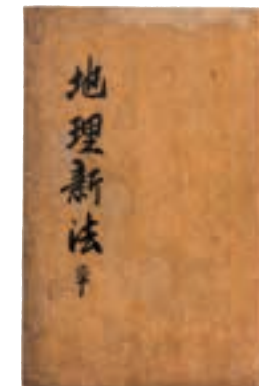 地理新法